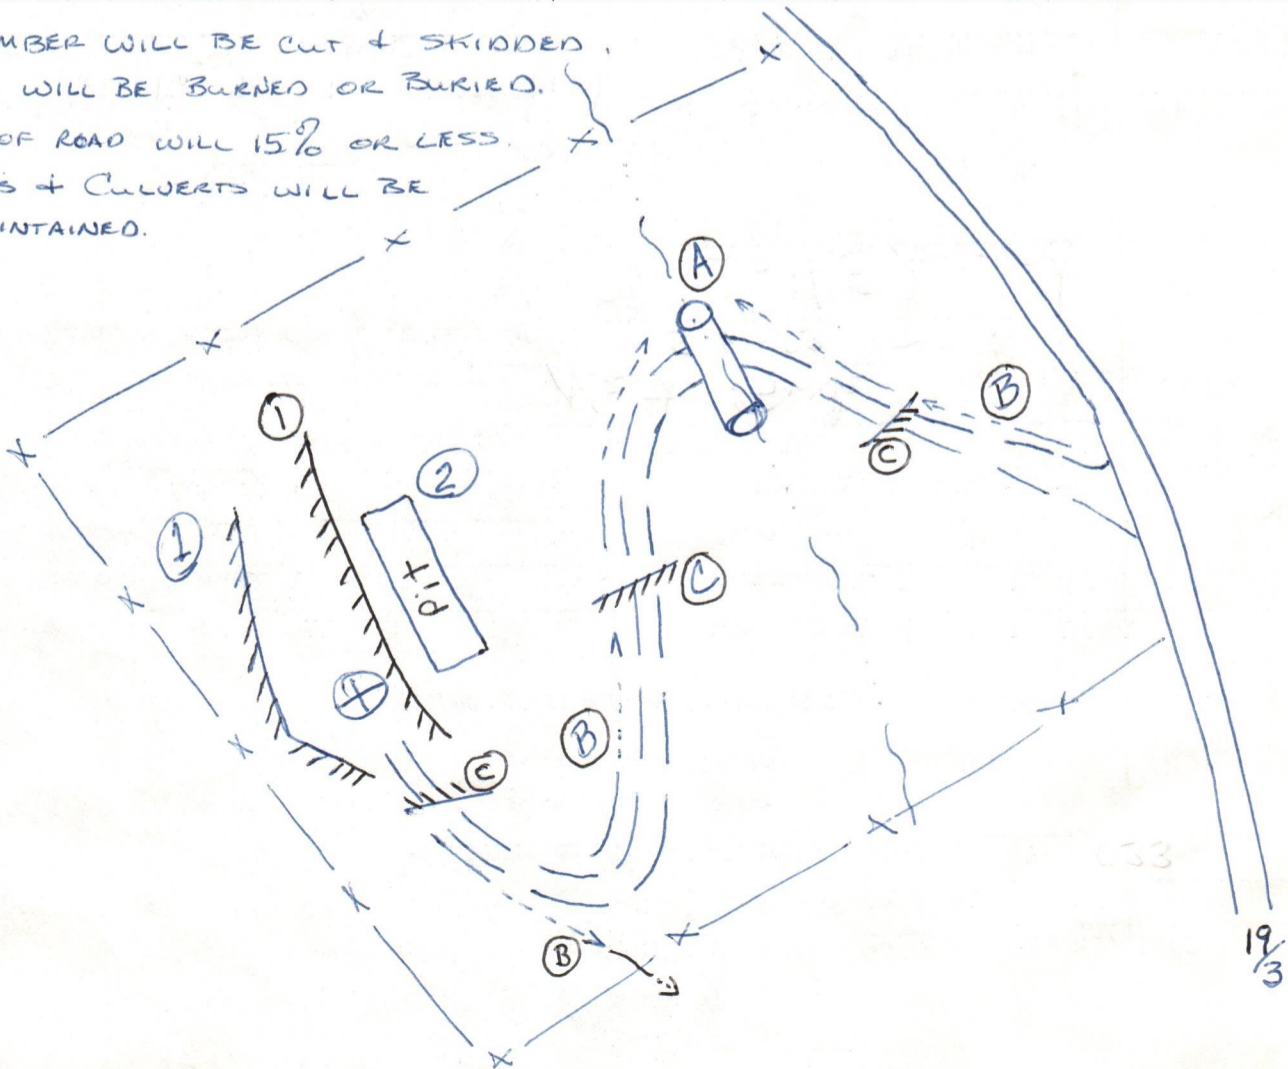 MBER WILL BE CUT & SKIDDED.
WILL BE BURNED OR BURIED.
OF ROAD WILL 15% OR LESS.
S & CULVERTS WILL BE
INTAINED.
A
B
C
1
2
1
pit
C
B
C
B
19/3